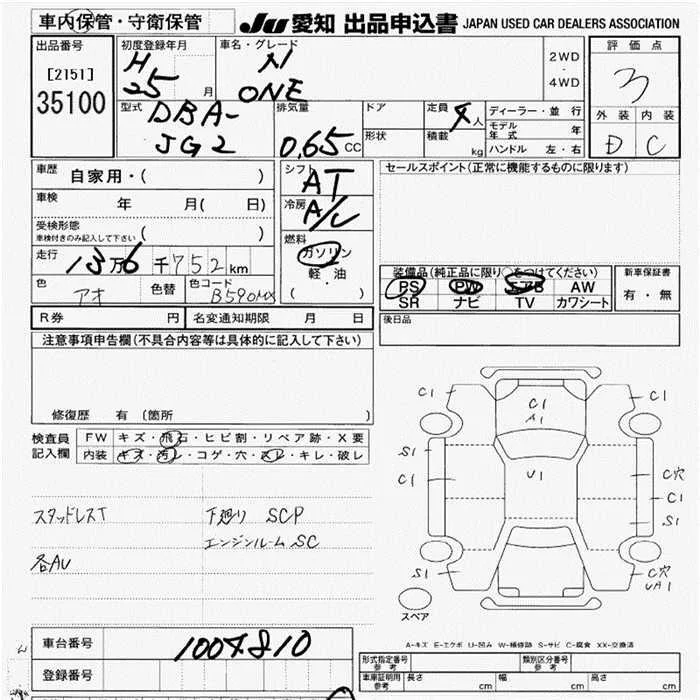 車内保管・守衛保管
JU 愛知 出品申込書 JAPAN USED CAR DEALERS ASSOCIATION
出品番号
[2151]
35100
初度登録年月
H
25 月
車名・グレード
N
ONE
2WD
・
4WD
評価点
3
外装 内装
D C
型式
DBA-
JG2
排気量
0.65 CC
ドア
形状
定員 4 人
積載 kg
ディーラー・並行
モデル年式 年
ハンドル 左・右
車歴 自家用・( )
車検 年 月( 日)
受検形態
車検付きのみ記入して下さい ( )
走行 13万6千752km
色 アオ 色替 色コード B590MX
シフト AT
冷房 A/C
燃料
ガソリン
軽・油
( )
セールスポイント(正常に機能するものに限ります)
装備品(純正品に限り○をつけてください)
PS PW エアB AW
SR ナビ TV カワシート
新車保証書
有・無
R券 円 名変通知期限 月 日
後日品
注意事項申告欄(不具合内容等は具体的に記入して下さい)
修復歴 有 (箇所 )
検査員記入欄
FW キズ・飛石・ヒビ割・リペア跡・X要
内装 キズ・汚レ・コゲ・穴・スレ・キレ・破レ
スタッドレスT
下廻り SCP
エンジンルーム SC
各AU
C1
C1
C1
A1
S1
C1
U1
C穴
C1
S1
S1
C穴
UA1
スペア
A-キズ E-エクボ U-凹み W-補修跡 S-サビ C-腐食 XX-交換済
車台番号 1007810
登録番号
形式指定番号
参考
類別区分番号
参考
車庫証明用
参考
長さ cm 幅 cm 高さ cm